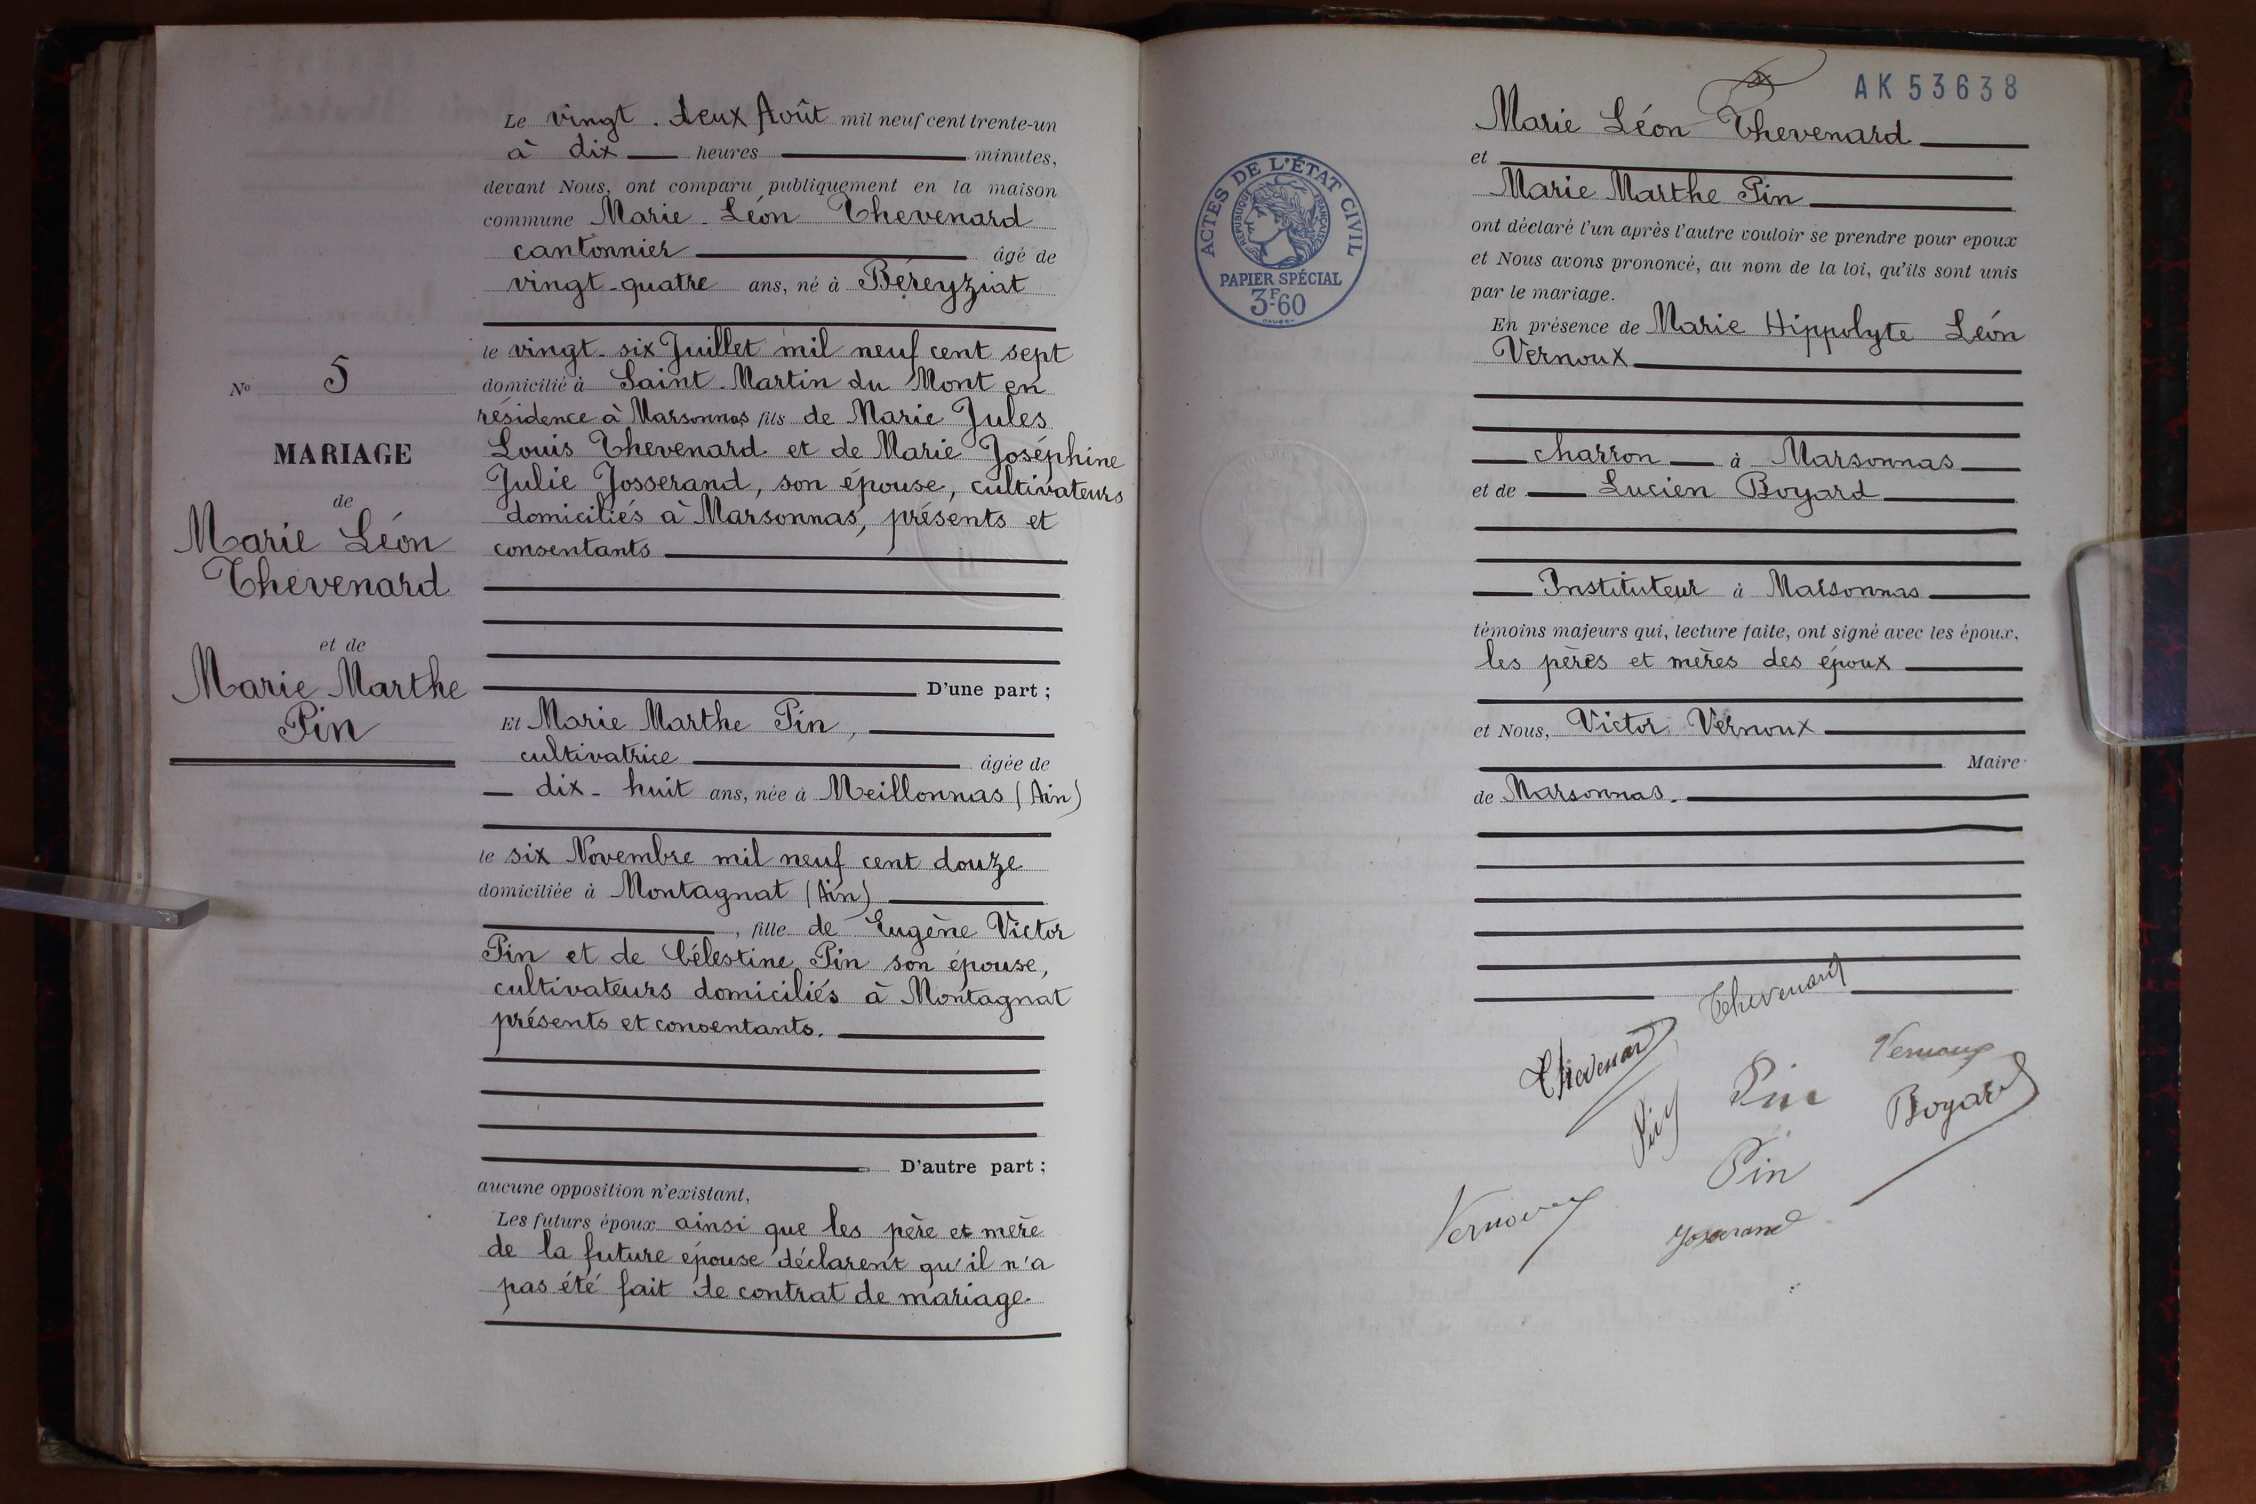 Le vingt-deux Août mil neuf cent trente-un
à dix heures minutes,
devant Nous, ont comparu publiquement en la maison
commune Marie-Léon Thevenard
cantonnier âgé de
vingt-quatre ans, né à Béreyziat
le vingt-six Juillet mil neuf cent sept
domicilié à Saint-Martin du Mont en
résidence à Marsonnas fils de Marie Jules
Louis Thevenard et de Marie Joséphine
Julie Josserand, son épouse, cultivateurs
domiciliés à Marsonnas, présents et
consentants
D'une part ;
Et Marie Marthe Pin,
cultivatrice âgée de
dix-huit ans, née à Meillonnas (Ain)
le six Novembre mil neuf cent douze
domiciliée à Montagnat (Ain)
, fille de Eugène Victor
Pin et de Célestine Pin son épouse,
cultivateurs domiciliés à Montagnat
présents et consentants.
D'autre part ;
aucune opposition n'existant,
Les futurs époux ainsi que les père et mère
de la future épouse déclarent qu'il n'a
pas été fait de contrat de mariage.
No 5
MARIAGE
de
Marie Léon
Thevenard
et de
Marie Marthe
Pin
AK 53638
Marie Léon Thevenard
et
Marie Marthe Pin
ont déclaré l'un après l'autre vouloir se prendre pour epoux
et Nous avons prononcé, au nom de la loi, qu'ils sont unis
par le mariage.
En présence de Marie Hippolyte Léon
Vernoux
charron à Marsonnas
et de Lucien Boyard
Instituteur à Marsonnas
témoins majeurs qui, lecture faite, ont signé avec les époux,
les pères et mères des époux
et Nous, Victor Vernoux
Maire
de Marsonnas.
ACTES DE L'ÉTAT CIVIL
RÉPUBLIQUE FRANÇAISE
PAPIER SPÉCIAL
3F60
Thevenard
Thevenard
Vernoux
Pin
Pin
Boyard
Pin
Vernoux
Josserand